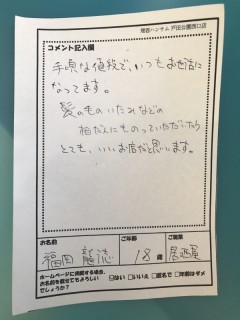 理容ハンサム 戸田公園西口店
コメント記入欄
手頃な値段で、いつもお世話に
なってます。
髪のものいたみなどの
相だんにものっていただいたり
とても、いいお店だと思います。
お名前
ご年齢
ご職業
福田
18 歳
居酒屋
ホームページに掲載する場合、
お名前を載せてもよろしい
でしょうか?
はい □いいえ □匿名で □年齢はダメ